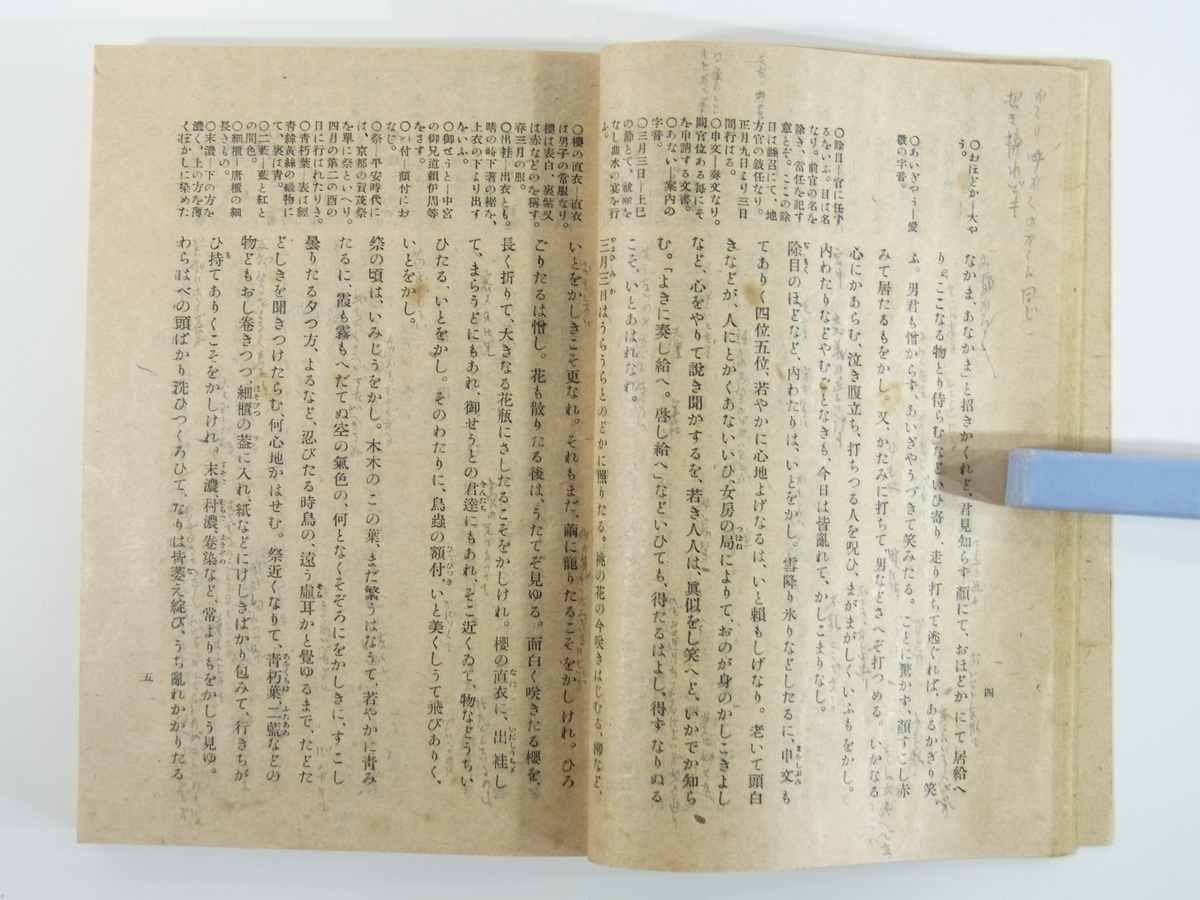 〇おほどか―大や
う。
〇あいぎやう―愛
敬の字音。
〇除目―官に任ず
るをいふ。目は名
なり。前官の名を
除き、常任を記す
意とぞ。ここの除
目は縣召にて、地
方官の敍任なり。
正月九日より三日
間行はる。
〇申文―奏文なり。
闕官位ある毎にそ
を申請する文書。
〇あない―案内の
字音。
〇三月三日―上巳
の節とて、祓除を
なし曲水の宴を行
ふ。
なかま、あなかま」と招きかくれど、君見知らず顏にて、おほどかにて居給へ
り。「ここなる物とり侍らむ」などいひ寄り、走り打ちて逃ぐれば、あるかぎり笑
ふ。男君も憎からず、あいぎやうづきて笑みたる。ことに驚かず、顏すこし赤
みて居たるもをかし。又、かたみに打ちて、男などさへぞ打つめる。いかなる
心にかあらむ、泣き腹立ち、打ちつる人を呪ひ、まがまがしくいふもをかし。
内わたりなどやむごとなきも、今日は皆亂れて、かしこまりなし。
除目のほどなど、内わたりは、いとをかし。雪降り氷りなどしたるに、申文も
てありく四位五位、若やかに心地よげなるは、いと賴もしげなり。老いて頭白
きなどが、人にとかくあないいひ、女房の局によりて、おのが身のかしこきよし
など、心をやりて說き聞かするを、若き人人は、眞似をし笑へど、いかでか知ら
む。「よきに奏し給へ。啓し給へ」などいひても、得たるはよし、得ずなりぬる
こそ、いとあはれなれ。
三月三日はうらうらとのどかに照りたる。桃の花の今咲きはじむる、柳など、
四
〇櫻の直衣―直衣
は男子の常服なり。
櫻は表白、裏紫又
は赤などのを稱す。
春三月の服。
〇出袿―出衣とも。
晴の時下著の裾を、
上衣の下より出す
をいふ。
〇御せうと―中宮
の御兄道賴伊周等
をさす。
〇額付―額付にお
なじ。
〇祭―平安時代に
は、京都の賀茂祭
を單に祭といへり。
四月の第二の酉の
日に行はれたりき。
〇青朽葉―表は經
青緯黃絲の織物に
て、裏は青。
〇二藍―藍と紅と
の間色。
〇細櫃―唐櫃の細
長きもの。
〇末濃―下の方を
濃く、上の方を薄
くぼかしに染めた
いとをかしきこそ更なれ。それもまだ、繭に籠りたるこそをかしけれ。ひろ
ごりたるは憎し。花も散りたる後は、うたてぞ見ゆる。面白く咲きたる櫻を、
長く折りて、大きなる花瓶にさしたるこそをかしけれ。櫻の直衣に、出袿し
て、まらうどにもあれ、御せうとの君達にもあれ、そこ近くゐて、物などうちい
ひたる、いとをかし。そのわたりに、鳥蟲の額付、いと美くしうて飛びありく、
いとをかし。
祭の頃は、いみじうをかし。木木のこの葉、まだ繁うはなうて、若やかに青み
たるに、霞も霧もへだてぬ空の氣色の、何となくそぞろにをかしきに、すこし
曇りたる夕つ方、よるなど、忍びたる時鳥の、遠う虛耳かと覺ゆるまで、たどた
どしきを聞きつけたらむ、何心地かはせむ。祭近くなりて、青朽葉、二藍などの
物どもおし卷きつつ、細櫃の蓋に入れ、紙などにけしきばかり包みて、行きちが
ひ持てありくこそをかしけれ。末濃、村濃、卷染など、常よりもをかしう見ゆ。
わらはべの頭ばかり洗ひつくろひて、なりは皆萎え綻び、うち亂れかかりたる
五